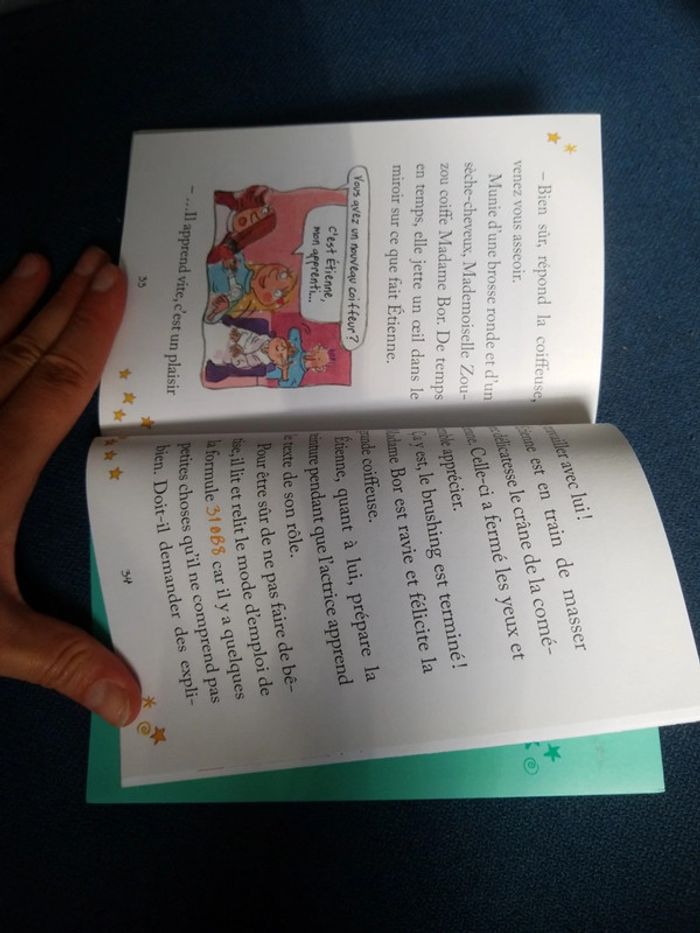 – Bien sûr, répond la coiffeuse,
venez vous asseoir.
Munie d'une brosse ronde et d'un
sèche-cheveux, Mademoiselle Zou-
zou coiffe Madame Bor. De temps
en temps, elle jette un œil dans le
miroir sur ce que fait Étienne.
Vous avez un nouveau coiffeur ?
C'est Étienne,
mon apprenti...
– …Il apprend vite, c'est un plaisir
33
avec lui !
est en train de masser
délicatesse le crâne de la comé-
Celle-ci a fermé les yeux et
apprécier.
Ça y est, le brushing est terminé !
Madame Bor est ravie et félicite la
grande coiffeuse.
Étienne, quant à lui, prépare la
teinture pendant que l'actrice apprend
le texte de son rôle.
Pour être sûr de ne pas faire de bê-
tise, il lit et relit le mode d'emploi de
la formule 310B8 car il y a quelques
petites choses qu'il ne comprend pas
bien. Doit-il demander des expli-
34